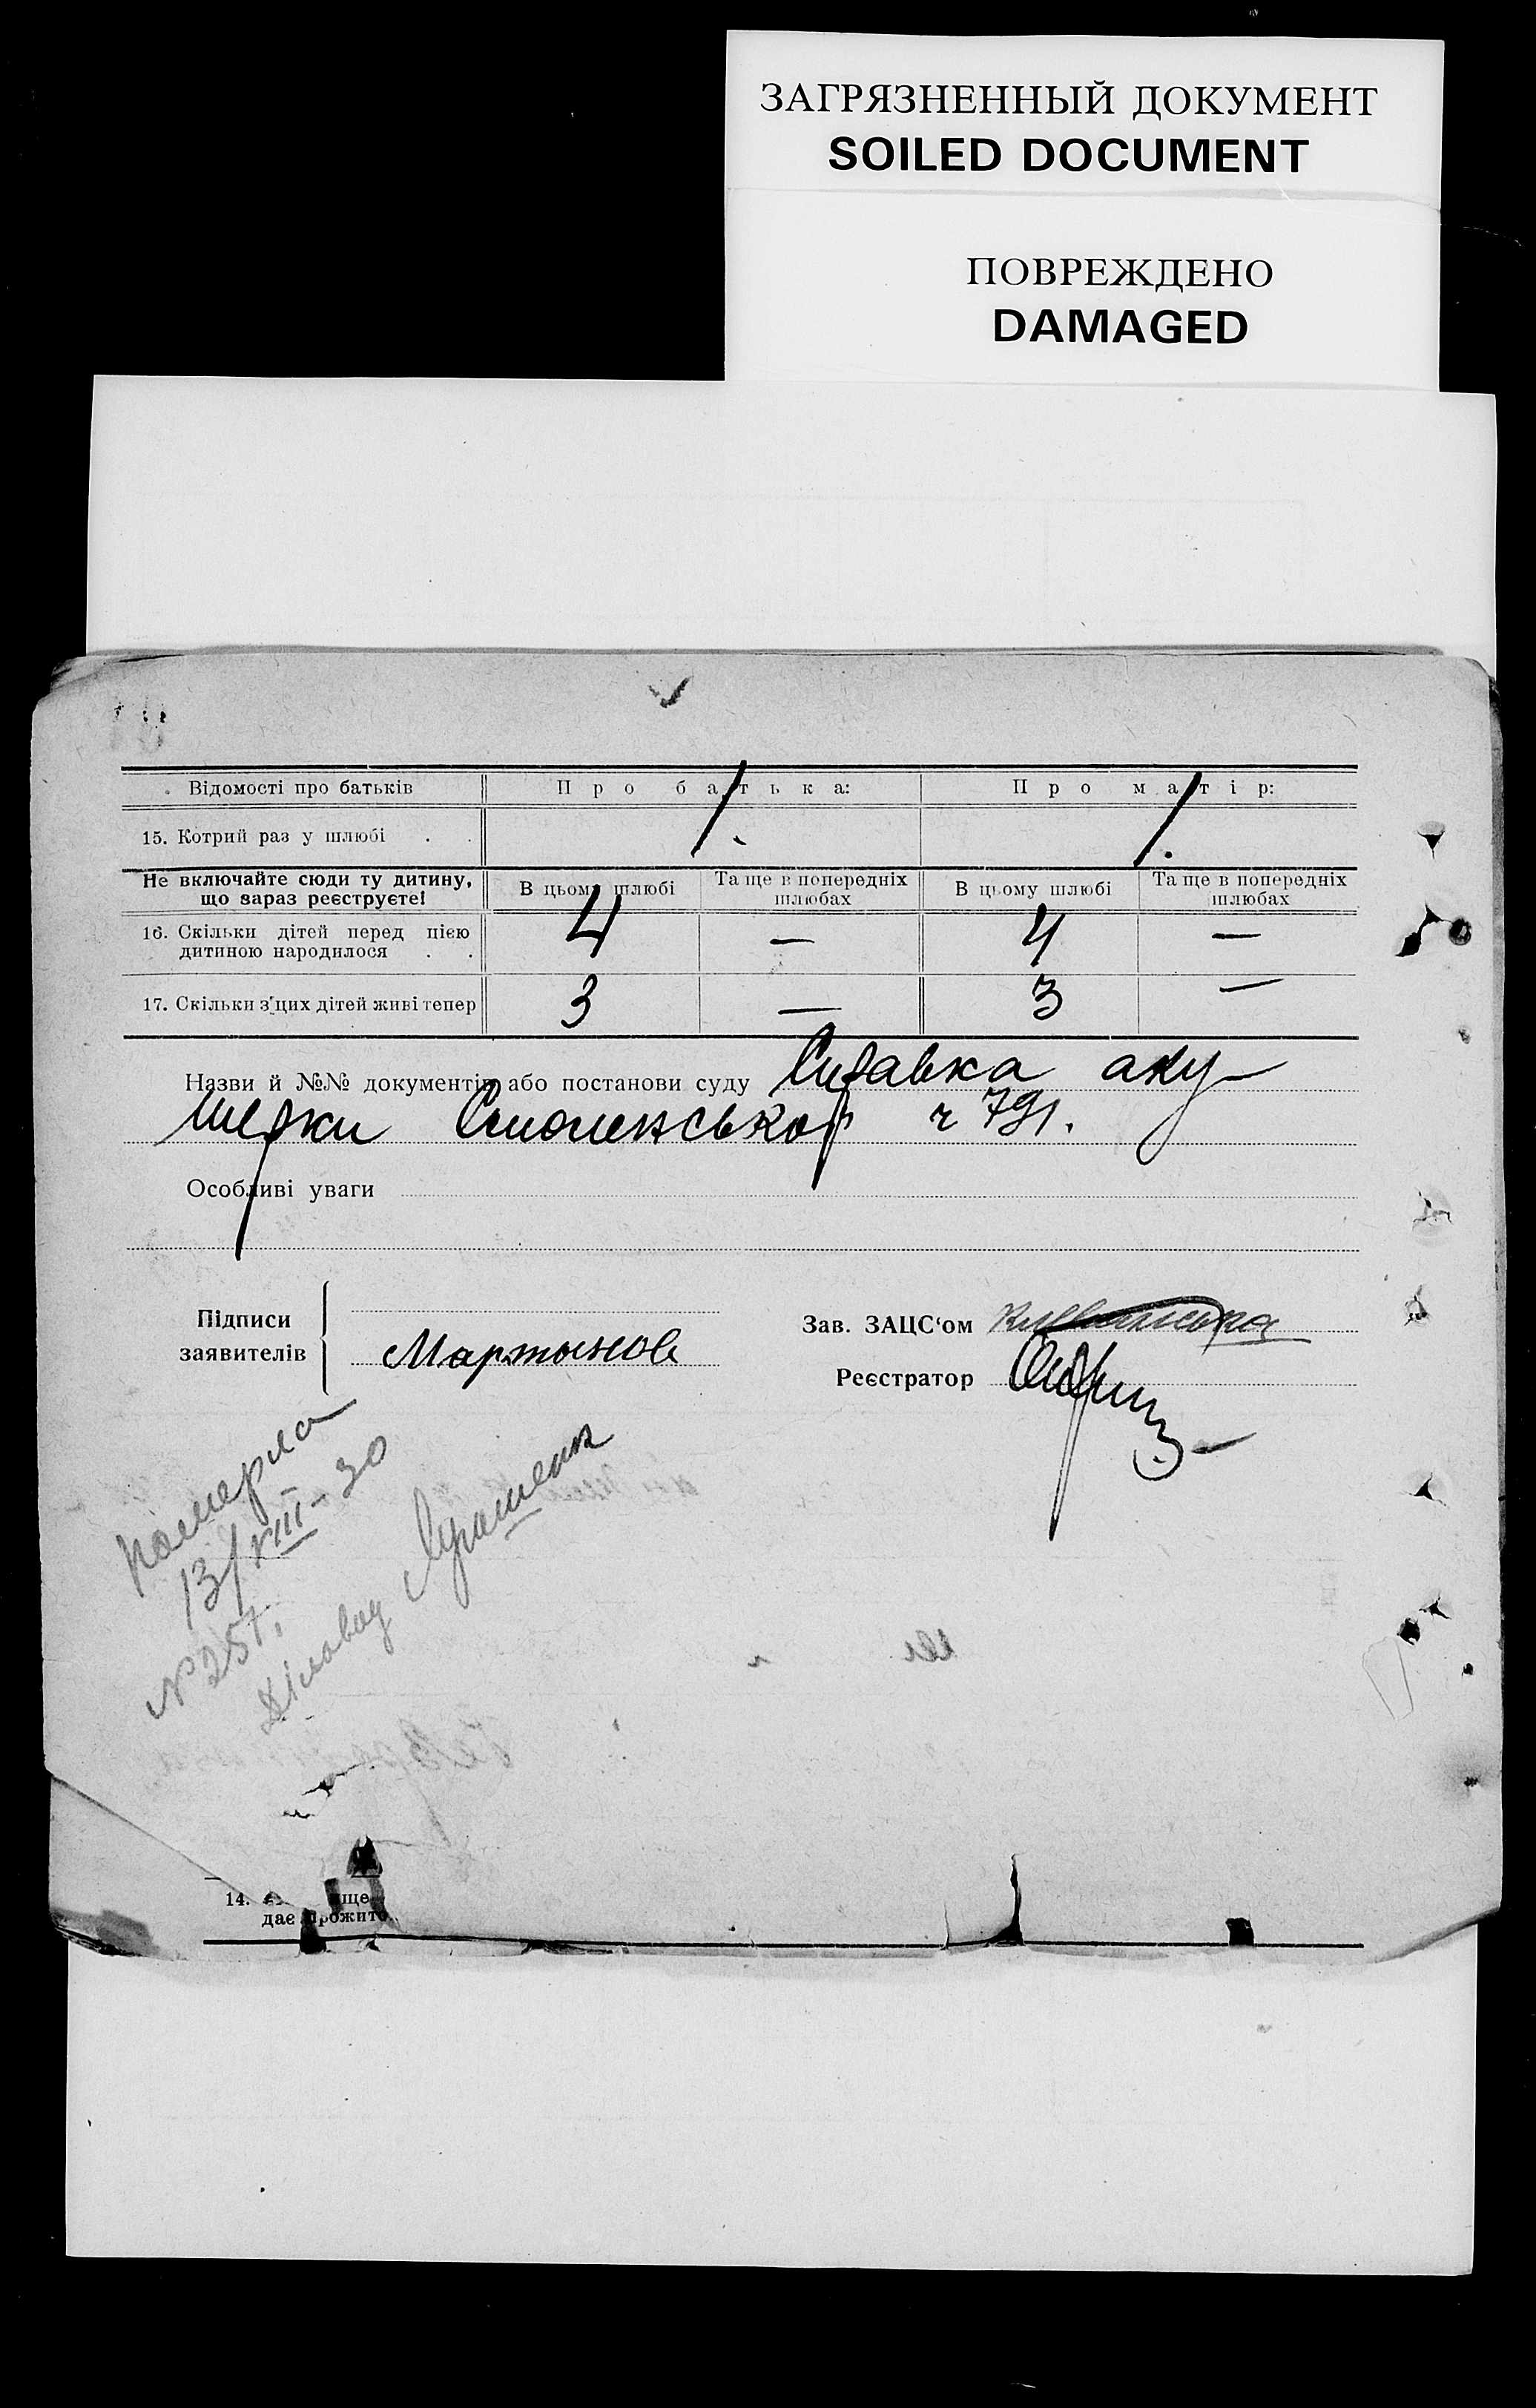 ЗАГРЯЗНЕННЫЙ ДОКУМЕНТ
SOILED DOCUMENT
ПОВРЕЖДЕНО
DAMAGED
Відомості про батьків Про батька: Про матір:
15. Котрий раз у шлюбі . . 1. 1.
Не включайте сюди ту дитину, що зараз реєструєте! В цьому шлюбі Та ще в попередніх шлюбах В цьому шлюбі Та ще в попередніх шлюбах
16. Скільки дітей перед цією дитиною народилося . . 4 — 4 —
17. Скільки з цих дітей живі тепер 3 — 3 —
Назви й №№ документів або постанови суду Справка аку-
шерки Смоленської ч 791.
Особливі уваги
Підписи
заявителів Мартынов
Зав. ЗАЦС‘ом
Реєстратор
померла
13/VIII-30
№ 257.
Діловод
14. ище
дає прожито